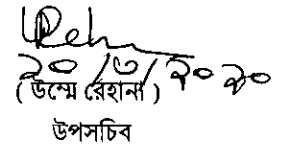 ২০/৩/২০২০
( উম্মে রেহানা )
উপসচিব